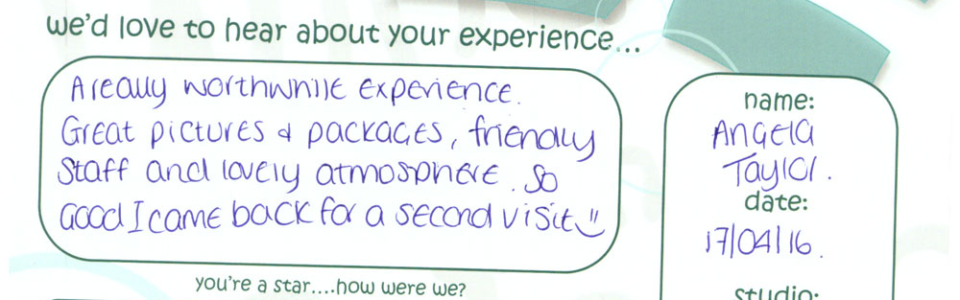 we'd love to hear about your experience...
A really worthwhile experience.
Great pictures & packages, friendly
staff and lovely atmosphere. So
good I came back for a second visit
name:
Angela
Taylor.
date:
17/04/16.
you're a star....how were we?
studio: